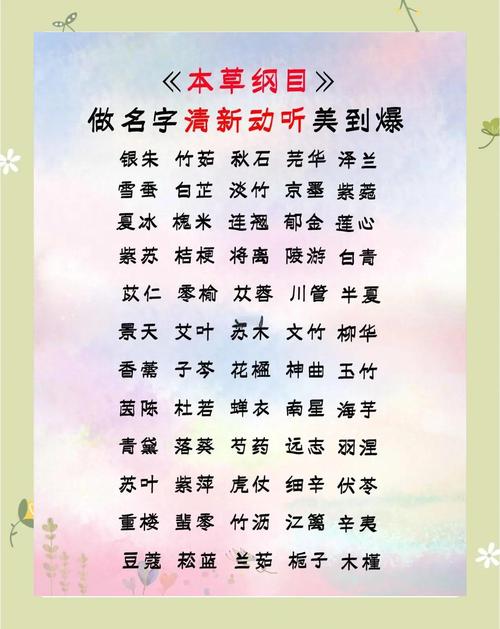 《本草纲目》
做名字清新动听美到爆
银朱 竹茹 秋石 芫华 泽兰
雪蚕 白芷 淡竹 京墨 紫菀
夏冰 槐米 连翘 郁金 莲心
紫苏 桔梗 将离 陵游 白青
苡仁 零榆 苁蓉 川管 半夏
景天 艾叶 苏木 文竹 柳华
香薷 子芩 花楹 神曲 玉竹
茵陈 杜若 蝉衣 南星 海芋
青黛 落葵 芍药 远志 羽涅
苏叶 紫萍 虎仗 细辛 伏苓
重楼 蜚零 竹沥 江篱 辛夷
豆蔻 菘蓝 兰茹 栀子 木槿